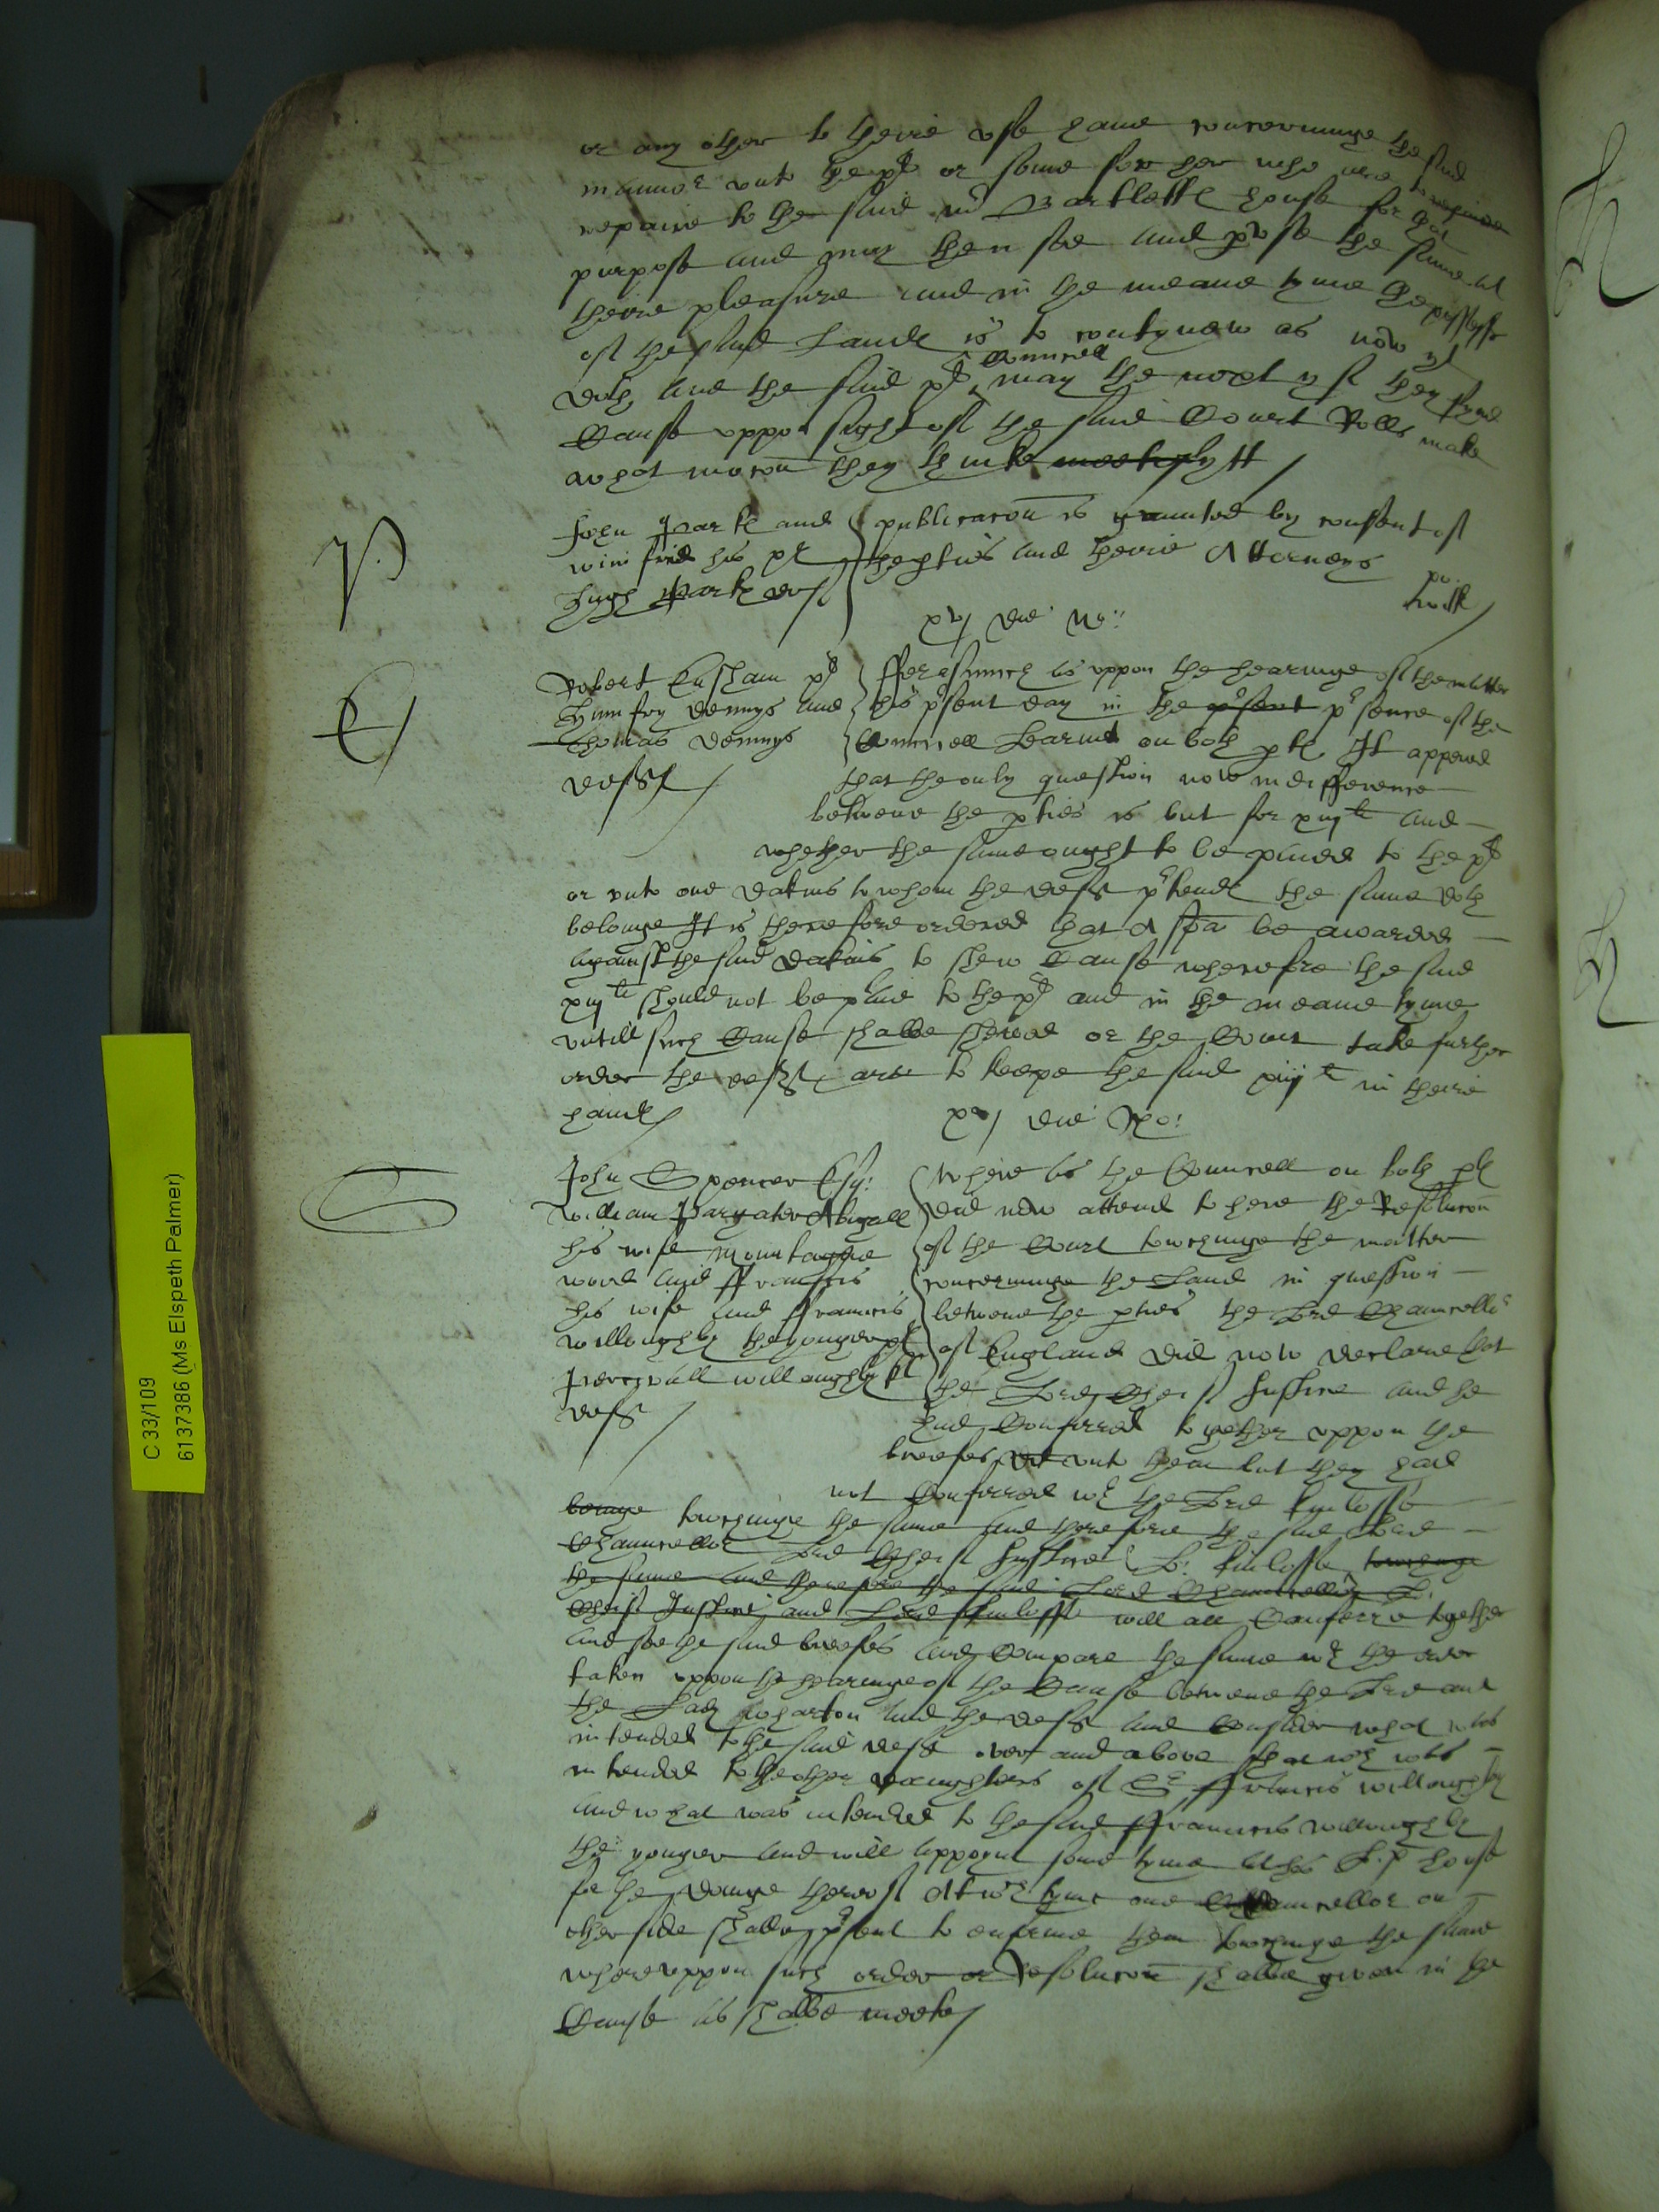 or any other to theire use have concerninge the said
mannor unto the pl or some for her who are to
repaire to the said mr Bartletts house for that
purpose and may then see and pruse the same at
theire pleasure and in the meane tyme the possession
of the said Lands is to contynew as now yt
doth, And the said pl Councell may the next yf they fynd
Cause uppon sight of the said Court Rolls make
what mocon they thinke meete
P
John Parks and
winifred his pl
Hugh Parks def
publicacon is graunted by consent of
the pties and theire Attorneys
xvj die No:
E
Robert Eusham pl
Humfry Dennys and
Thomas Dennys
deffts
fforasmuch as uppon the hearinge of the matter
this psent day in the psent psence of the
Councell Learned on both pts It appered
that the only question now in difference
betwene the pties is but for xiijli and
whether the same ought to be paied to the pl
or unto one Dakins to whom the deffts ptends the same doth
belonge It is therefore ordered that A spa be awarded
against the said Dakins to shew Cause wherefore the said
xiijli should not be paid to the pl and in the meane tyme
untill such Cause shalbe shewed or the Court take further
order the deffts are to keepe the said xiijli in theire
hands
xvj die No:
S
John Spencer Esq:
William Pargater Abigall
his wife Mountague
wood and ffrancis
his wife and ffrancis
willoughby the younger pl
Percyvall willoughby kt
deft
Where as the Councell on both pts
did now attend to here the Resolucon
of the Court towchinge the matter
concerninge the Land in question
betwene the pties the Lord Chauncellor
of England did now declare that
the Lord Cheif Justice and he
had Conferred together uppon the
breefes unto them but they had
not Conferred wth the Lord Kinlosse
towchinge the same And therefore the said Lord
Chauncellor Lord Cheif Justice L: Kinlosse towchinge
the same and therefore the said Lord Chauncellor L:
Cheif Justice and Lord Kinlosse will all Conferre together
and see the said breefes and Compare the same wth the order
taken uppon the hearinge of the Cause betwene the Lord and
the Lady wharton and the deft and Consider what was
intended to the said deft over and above that wch was
intended to the other Daughters of Sr ffrancis willoughby
and what was intended to the said ffrancis willoughby
the younger and will appoynt some tyme at his L:p house
for the doinge thereof At wch tyme one Councellor on
ether side shalbe psent to enforme them towchinge the same
whereuppon such order or Resolucon shalbe given in the
Cause as shalbe meete
C 33/109
6137386 (Ms Elspeth Palmer)